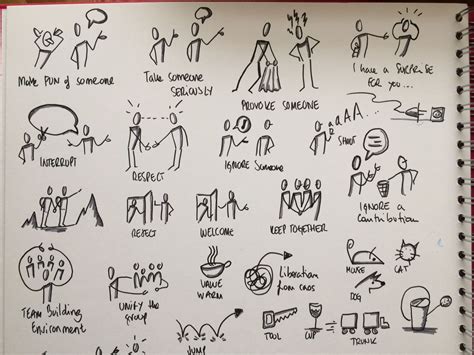 Make PUN of someone
Take Someone
SERIOUSLY
PROVOKE SOMEONE
I have a SURPRISE
FOR you...
INTERRUPT
RESPECT
IGNORE Someone
aAAA...
SHOUT
IGNORE a
contribution
REJECT
WELCOME
KEEP TOGETHER
TEAM Building
Environment
Unity the
group
VALUE
WARM
Liberation
from caos
MOUSE
CAT
DOG
TOOL
CUP
TRUNK
JUMP